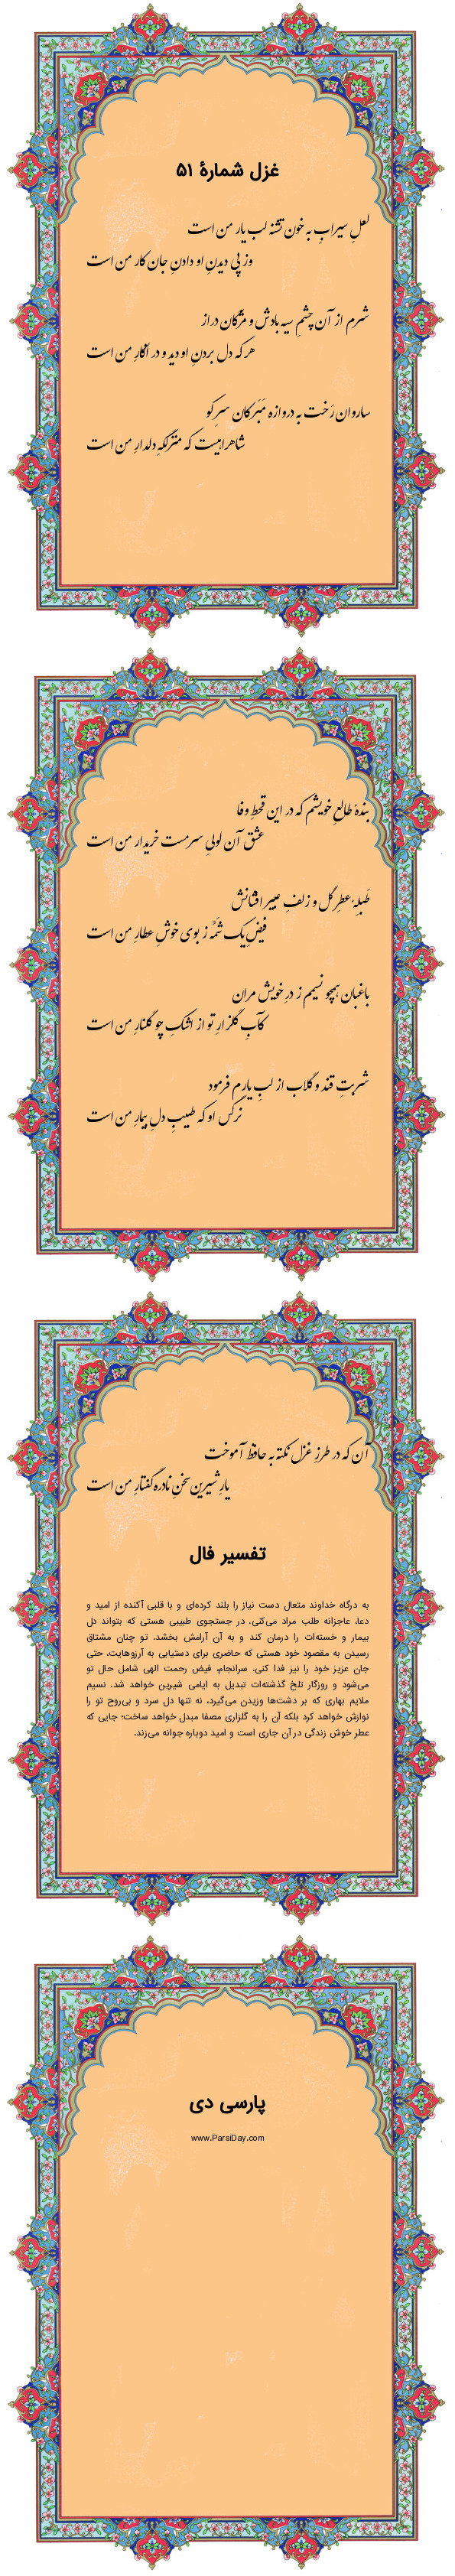 غزل شمارهٔ ۵۱
لعلِ سیرابِ به خون تشنه لب یار من است
وز پی دیدنِ او دادنِ جان کار من است
شرم از آن چشمِ سیه بادش و مژگان دراز
هر که دل بردنِ او دید و در انکارِ من است
ساروان رَخت به دروازه مَبَر کان سرِ کو
شاهراهیست که منزلگهِ دلدارِ من است
بندهٔ طالعِ خویشم که در این قحطِ وفا
عشق آن لولیِ سرمست خریدار من است
طَبلِهٔ عطرِ گل و زلفِ عبیرافشانش
فیضِ یک شمّه ز بوی خوشِ عطارِ من است
باغبان همچو نسیمم ز درِ خویش مران
کآبِ گلزارِ تو از اشکِ چو گلنارِ من است
شربتِ قند و گلاب از لبِ یارم فرمود
نرگس او که طبیبِ دلِ بیمارِ من است
آن که در طرزِ غزل نکته به حافظ آموخت
یارِ شیرین سخنِ نادره گفتارِ من است
تفسیر فال
به درگاه خداوند متعال دست نیاز را بلند کرده‌ای و با قلبی آکنده از امید و
دعا، عاجزانه طلب مراد می‌کنی. در جستجوی طبیبی هستی که بتواند دل
بیمار و خسته‌ات را درمان کند و به آن آرامش بخشد. تو چنان مشتاق
رسیدن به مقصود خود هستی که حاضری برای دستیابی به آرزوهایت، حتی
جان عزیز خود را نیز فدا کنی. سرانجام، فیض رحمت الهی شامل حال تو
می‌شود و روزگار تلخ گذشته‌ات تبدیل به ایامی شیرین خواهد شد. نسیم
ملایم بهاری که بر دشت‌ها وزیدن می‌گیرد، نه تنها دل سرد و بی‌روح تو را
نوازش خواهد کرد بلکه آن را به گلزاری مصفا مبدل خواهد ساخت؛ جایی که
عطر خوش زندگی در آن جاری است و امید دوباره جوانه می‌زند.
پارسی دی
www.ParsiDay.com